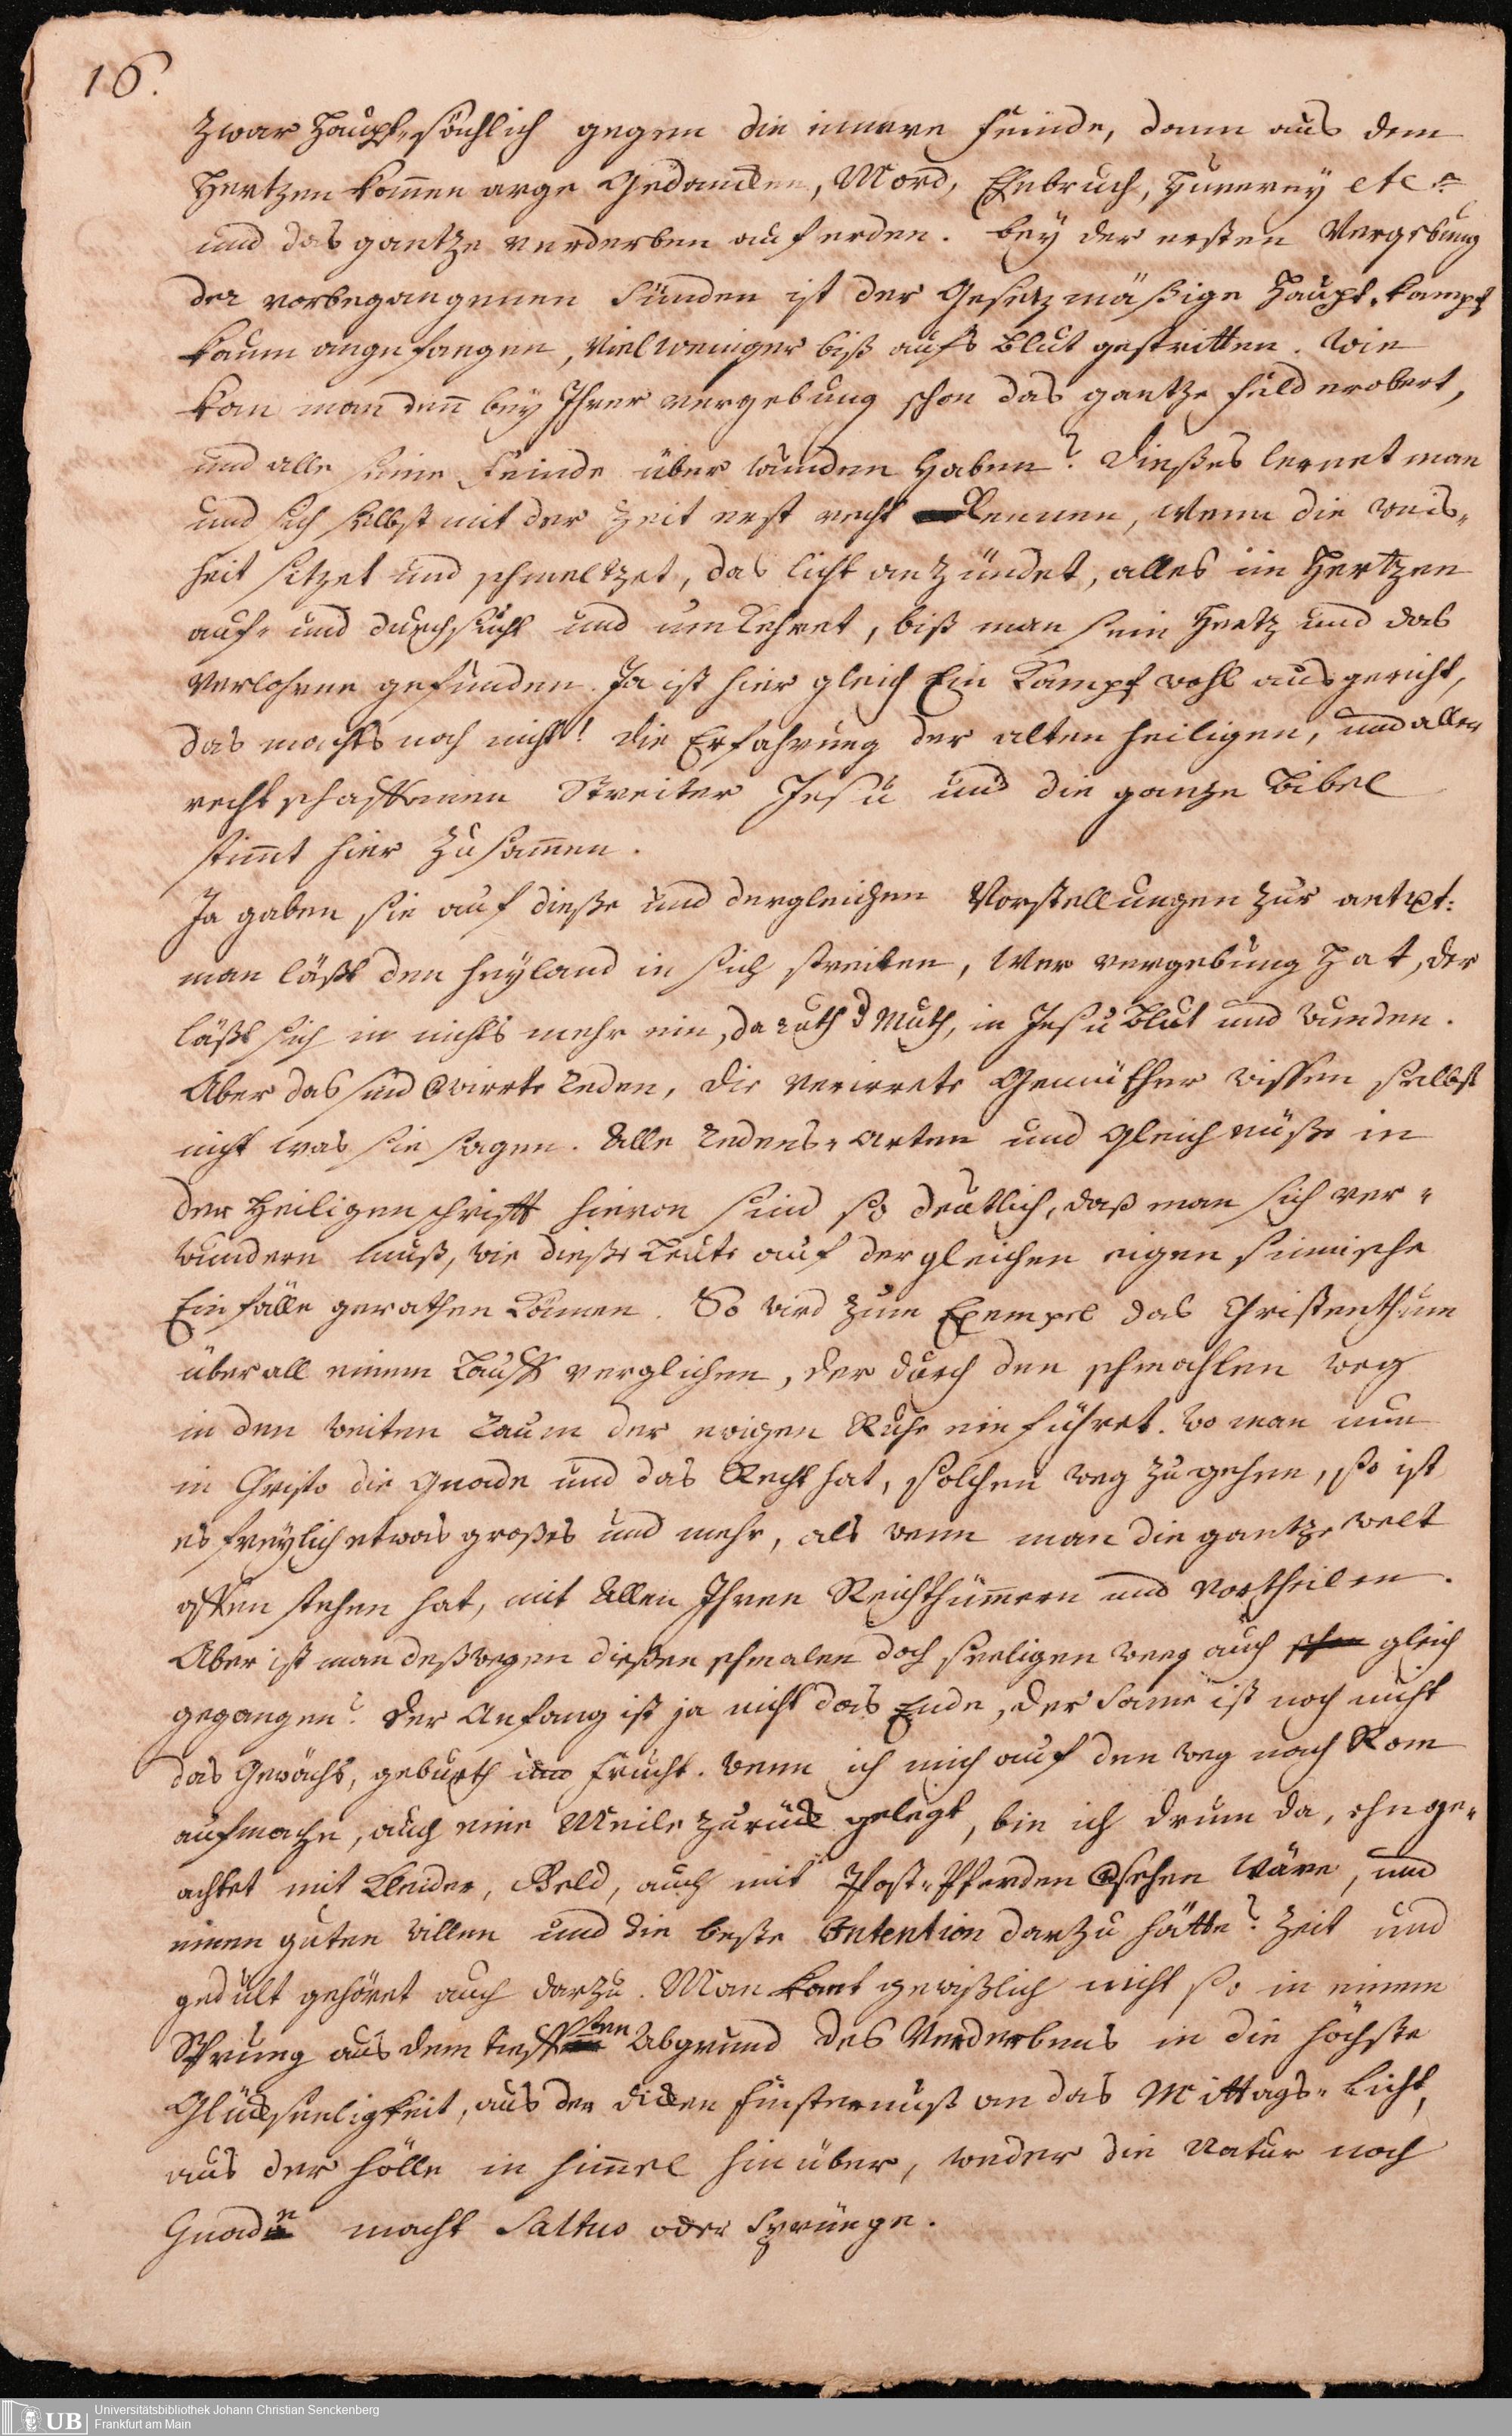 16.
zwar Haupt-sächlich gegen die innere feinde, dann aus dem
Hertzen kom̅en arge Gedancken, Mord, Ehebruch, Hurerey etc.
und das gantze verderben auf erden. bey der ersten Vergebung
der vorbegangenen Sünden ist der Gesetzmäßige Haupt-Kampf
kaum angefangen, vielweniger biß aufs Blut gestritten. Wie
kan man den̅ bey Ihrer vergebung schon das gantze feld erobert,
und alle seine Feinde überwunden haben? Dießes lernet man
und sich selbst mit der Zeit erst recht kennen, wenn die weis-
heit sitzet und schmeltzet, das licht anzündet, alles im Hertzen
auf- und durchsucht und umkehret, biß man sein Hertz und das
verlohrne gefunden. Ja ist hier gleich Ein Kampf wohl ausgericht,
das machts noch nicht! die Erfahrung der alten heiligen, und aller
rechtschaffenen Streiter Jesu und die ganze Bibel
stim̅t hier zusam̅en.
Ja gaben sie auf dieße und dergleichen Vorstellungen zur antwt:
man läßt den heyland in sich streiten, wer vergebung hat, der
läßt sich in nichts mehr ein, da ruth d Muth, in Jesu Blut und Wunden.
Aber das sind verwirrte reden, die verirrete Gemüther wissen selbst
nicht was sie sagen. Alle redens-arten und gleichnüße in
der heiligen schrifft hievon sind so deutlich, daß man sich ver-
wundern muß, wie dieße Leute auf dergleichen eigensinnische
Einfälle gerathen können. So wird zum Exempel das Christenthum
überall einem Lauff verglichen, der durch den schmahlen Weg
in den weiten raum der ewigen Ruhe einführet. wo man nun
in Christo die gnade und das Recht hat, solchen weg zu gehen, so ist
es freylich etwas großes und mehr, als wenn man die gantze welt
offen stehen hat, mit allen Ihren Reichthüm̅ern und Vortheilen.
Aber ist man deßwegen dießen schmalen doch seeligen weeg auch schon gleich
gegangen? der Anfang ist ja nicht das Ende, der Same ist noch nicht
das gewächs, geburth und frucht. wenn ich mich auf den weg nach Rom
aufmache, auch eine Meile zurück gelegt, bin ich drum da, ohnge-
achtet mit Kleider, Geld, auch mit Post-Pferden versehen wäre, und
einen guten willen und die beste Intention darzu hätte? Zeit und
gedult gehöret auch darzu. Man kan gewißlich nicht so in einem
Sprung aus dem tieffsten Abgrund des Verderbens in die höchste
Glückseeligkeit, aus der dicken finsternuß an das Mittags-Licht,
aus der hölle in him̅el hinüber, weder die Natur noch
Gnade macht Saltus oder Sprünge.
UB
Universitätsbibliothek Johann Christian Senckenberg
Frankfurt am Main